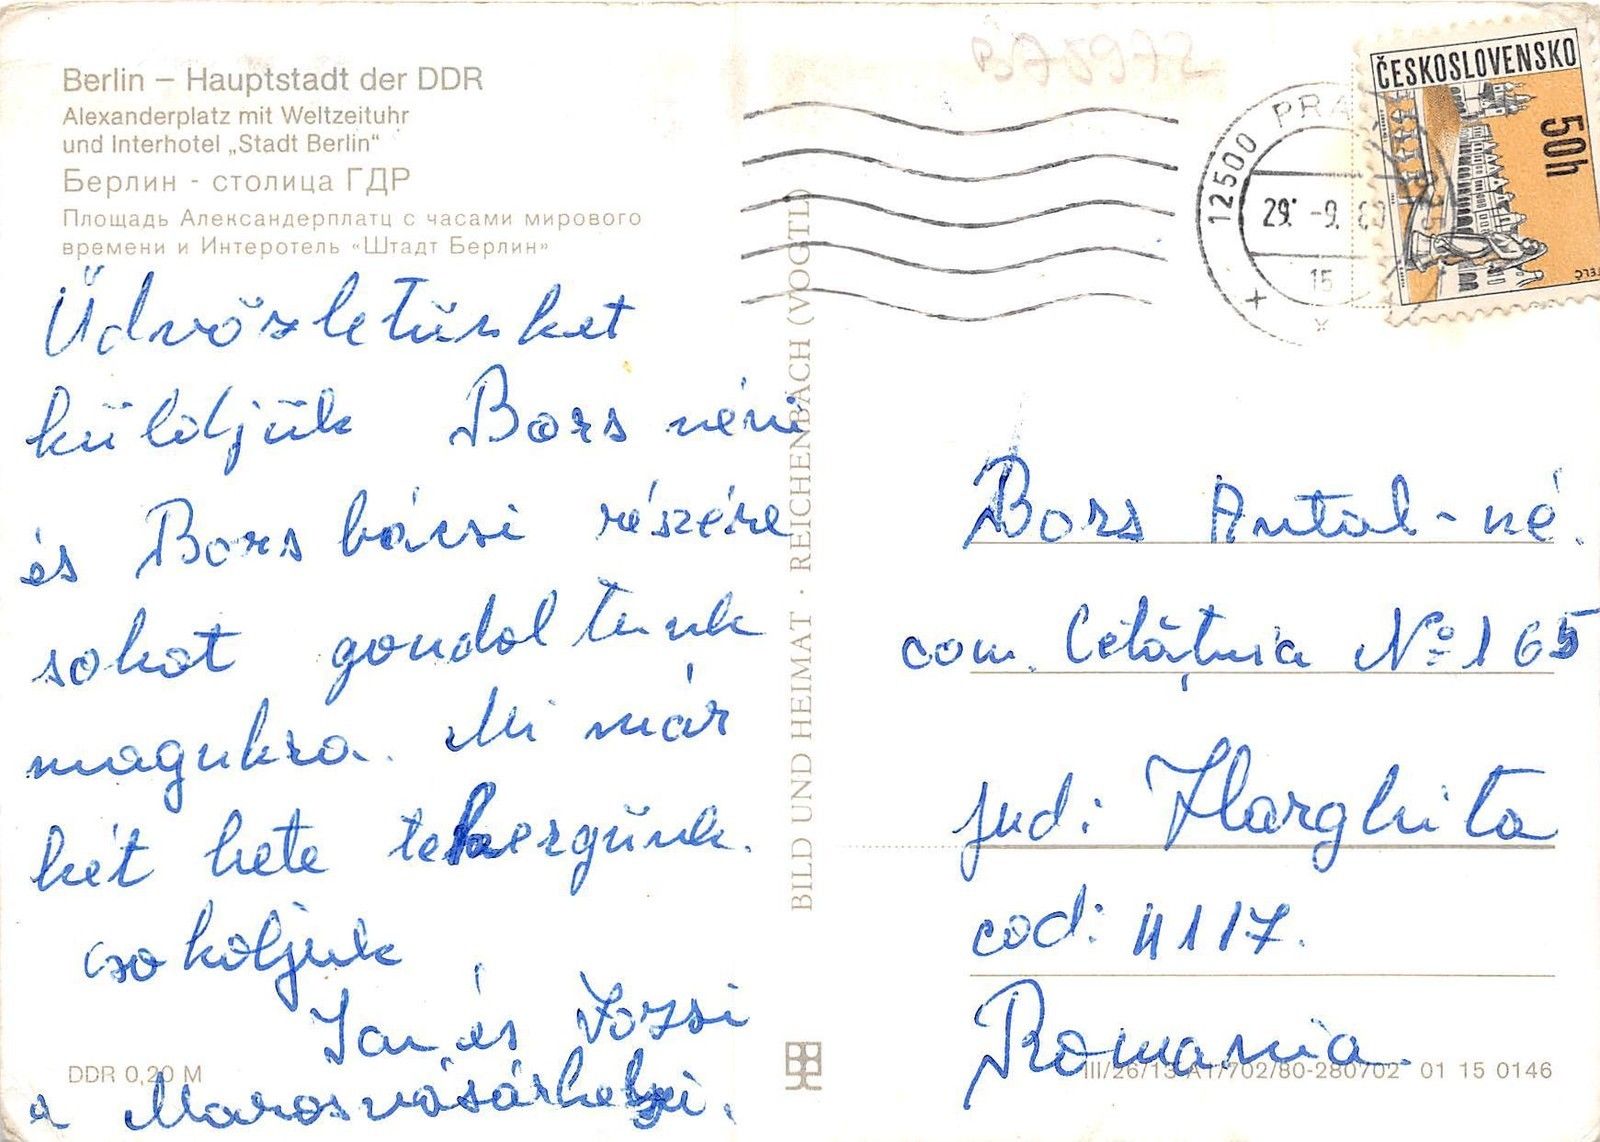 Berlin – Hauptstadt der DDR
Alexanderplatz mit Weltzeituhr
und Interhotel „Stadt Berlin“
Берлин - столица ГДР
Площадь Александерплатц с часами мирового
времени и Интеротель «Штадт Берлин»
Üdvözletünket
küldjük Bors néni
és Bors bácsi részére
sokat gondoltunk
magukra. Mi már
két hete tekergünk.
csokoljuk
és Jozsi
a Marosvásárhelyi.
DDR 0,20 M
BILD UND HEIMAT · REICHENBACH (VOGTL)
ČESKOSLOVENSKO
50h
12500 PRA
29. -9.
15
Bors Antal-né.
com. Cetățuia No 165
jud: Harghita
cod: 4117.
Romania.
III/26/13 A1/702/80-280702 01 15 0146